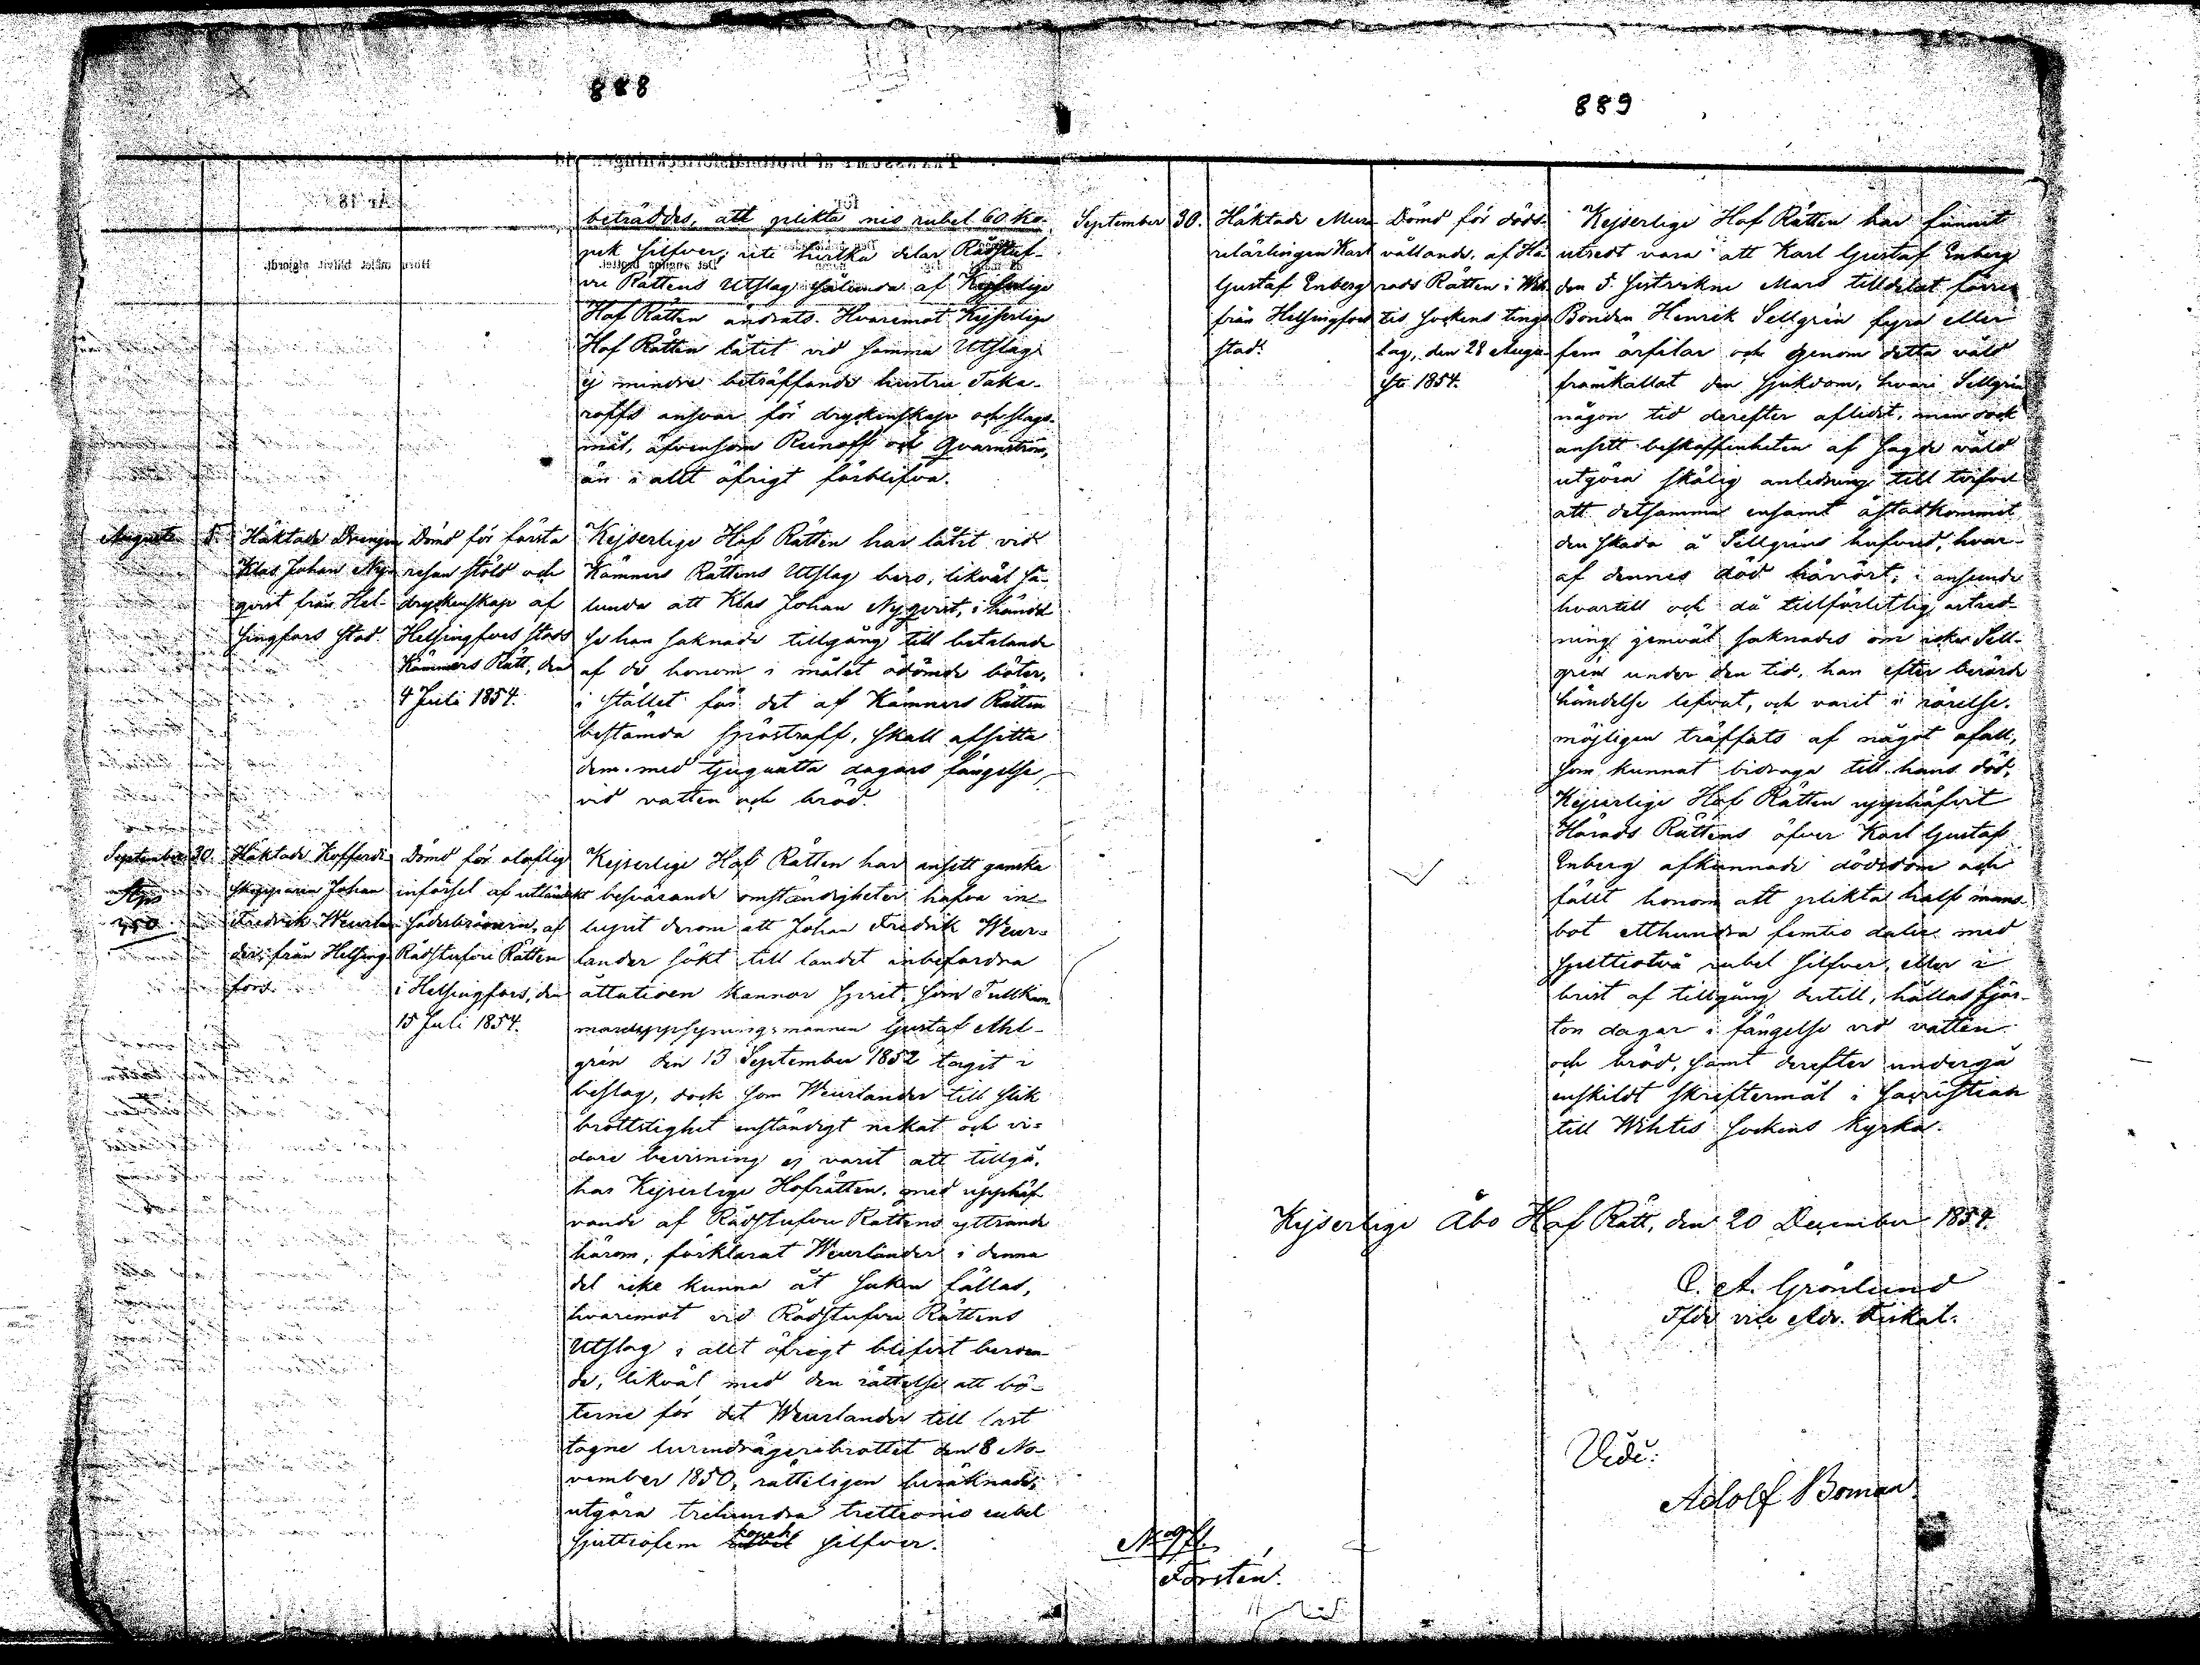 888
beträddes, att plikta nio rubel 60 ko-
pek silfver, uti hvilka delar Rådstuf-
vu Rättens Utslag sålunda af Kejserlige
Hof Rätten ändrats. Hvaremot Kejserlige
Hof Rätten låtit vid samma Utslag
ej mindre beträffande hustru Taka-
roffs ansvar för dryckenskap och slags-
mål, äfvensom Runoff och Qvarnström,
än i allt öfrigt förblifva.
Augusti 5.
Häktade Drengen
Klas Johan Ny-
qvist från Hel-
singfors stad.
Dömd för första
resan stöld och
dryckenskap af
Helsingfors stads
Kämners Rätt, den
4 Juli 1854.
Kejserlige Hof Rätten har låtit vid
Kämners Rättens Utslag bero, likväl så-
lunda att Klas Johan Nyqvist, i händel-
se han saknade tillgång till betalande
af de honom i målet ådömde böter,
i stället för det af Kämners Rätten
bestämda spöstraff, skall afsitta
dem med tjuguåtta dagars fängelse
vid vatten och bröd.
September 30.
Häktade Kofferdi
skepparen Johan
Fredrik Weurlan-
der, från Helsing-
fors.
Dömd för olaflig
införsel af utländskt
sädesbränvin, af
Rådstufvu Rätten
i Helsingfors, den
15 Juli 1854.
Kejserlige Hof Rätten har ansett ganska
besvärande omständigheter hafva in-
lupit derom att Johan Fredrik Weur-
lander sökt till landet inbefordra
åttatioen kannor sprit, som Tullkam-
maruppsyningsmannen Gustaf Ahl-
grén den 13 September 1852 tagit i
beslag, dock som Weurlander till slik
brottslighet enständigt nekat och vi-
dare bevisning ej varit att tillgå,
har Kejserlige Hofrätten, med upphäf-
vande af Rådstufvu Rättens yttrande
härom, förklarat Weurlander i denna
del icke kunna åt saken fällas,
hvaremot vid Rådstufvu Rättens
Utslag i allt öfrigt blifvit beroen-
de, likväl med den rättelse att bö-
terne för det Weurlander till last
tagne lurendrägeribrottet den 8 No-
vember 1850, rätteligen beräknade,
utgöra trehundra trettionio rubel
sjuttiofem kopek silfver.
889
September 30.
Häktade Mura-
relärlingen Karl
Gustaf Enberg
från Helsingfors
stad.
Dömd för döds-
vållande, af Hä-
rads Rätten i Wih-
tis sockens tings-
lag, den 28 Augu-
sti 1854.
Kejserlige Hof Rätten har funnit
utredt vara att Karl Gustaf Enberg
den 5 sistvekne Mars tilldelat förre
Bonden Henrik Sellgrén fyra eller
fem örfilar och genom detta våld
framkallat den sjukdom, hvari Sellgrén
någon tid derefter aflidit, men dock
ansett beskaffenheten af sagde våld
utgöra skälig anledning till tvifvel
att detsamma ensamt åstadkommit
den skada å Sellgréns hufvud, hvar-
af dennes död härrört; i anseende
hvartill och då tillförlitlig utred-
ning jemväl saknades om icke Sell-
grén under den tid, han efter berörde
händelse lefvat, och varit i rörelse,
möjligen träffats af något ofall,
som kunnat bidraga till hans död,
Kejserlige Hof Rätten upphäfvit
Härads Rättens öfver Karl Gustaf
Enberg afkunnade dödsdom och
fällt honom att plikta half mans-
bot etthundra femtio daler med
sjuttiotvå rubel silfver, eller i
brist af tillgång dertill, hållas fjor-
ton dagar i fängelse vid vatten
och bröd, samt derefter undergå
enskildt skriftermål i sacristian
till Wihtis sockens kyrka.
Kejserlige Åbo Hof Rätt, den 20 December 1854.
C. A. Grönlund
Tfde vice Adv. Fiskal.
Vidi:
Adolf Boman
Forstén.